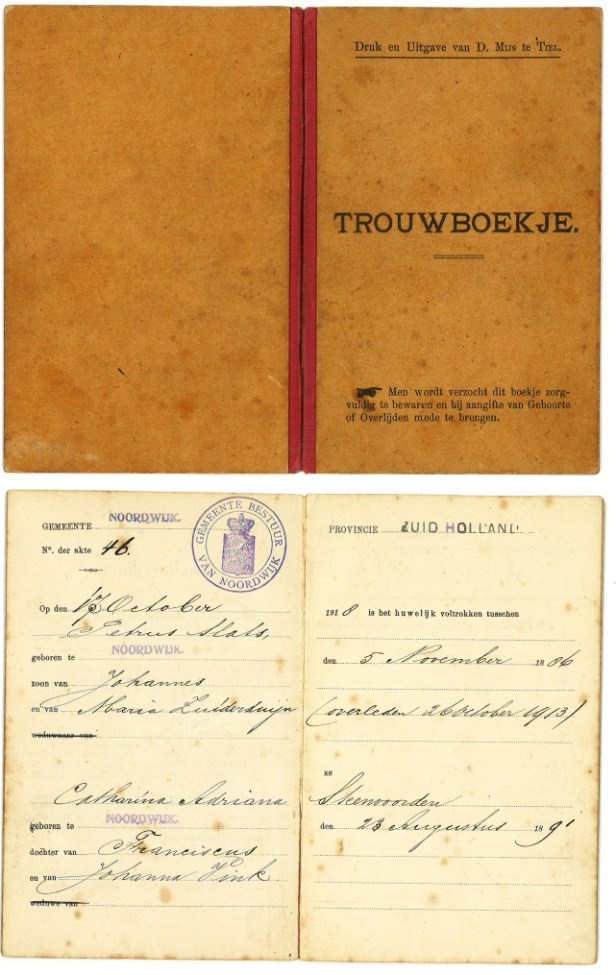 Druk en Uitgave van D. Mijs te Tiel.
TROUWBOEKJE.
Men wordt verzocht dit boekje zorg-
vuldig te bewaren en bij aangifte van Geboorte
of Overlijden mede te brengen.
GEMEENTE NOORDWIJK.
No. der akte 46.
GEMEENTE BESTUUR VAN NOORDWIJK
Op den October
Petrus Slats,
geboren te NOORDWIJK.
zoon van Johannes
en van Maria Zuiderduijn
weduwnaar van
Catharina Adriana
geboren te NOORDWIJK.
dochter van Franciscus
en van Johanna Vink
weduwe van
PROVINCIE ZUID HOLLAND
1918 is het huwelijk voltrokken tusschen
den 5 November 1886
(overleden 26 October 1913)
EN
Steenvoorden
den 23 Augustus 1891